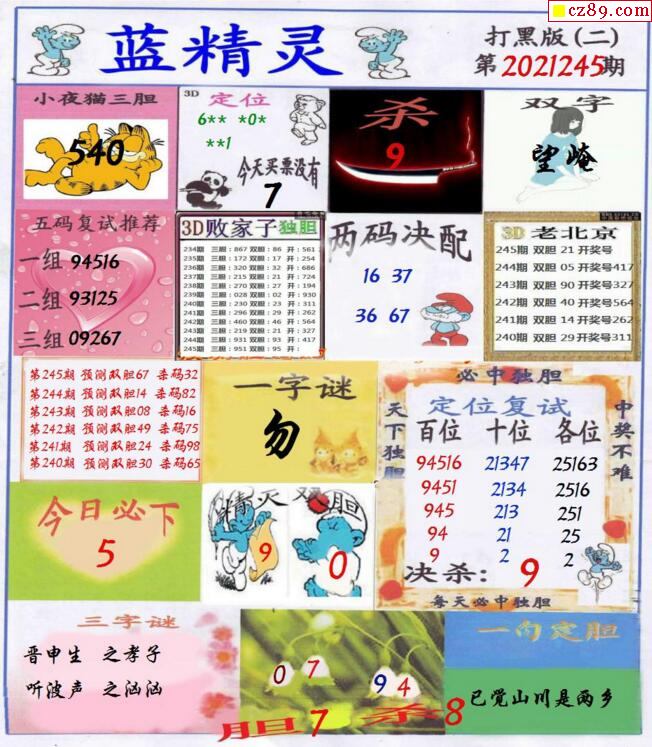 cz89.com
蓝精灵
打黑版(二)
第2021245期
小夜猫三胆
540
3D 定位
6** *0*
**1
今天买票没有
7
杀
9
双字
望崦
五码复试推荐
一组 94516
二组 93125
三组 09267
3D败家子独胆
234期 三胆：867 双胆：86 开：561
235期 三胆：172 双胆：17 开：254
236期 三胆：320 双胆：32 开：686
237期 三胆：215 双胆：21 开：724
238期 三胆：270 双胆：27 开：194
239期 三胆：028 双胆：02 开：930
240期 三胆：230 双胆：23 开：311
241期 三胆：296 双胆：29 开：262
242期 三胆：460 双胆：46 开：564
243期 三胆：219 双胆：21 开：327
244期 三胆：931 双胆：93 开：417
245期 三胆：951 双胆：95 开：
两码决配
16 37
36 67
3D 老北京
245期 双胆 21 开奖号
244期 双胆 05 开奖号417
243期 双胆 90 开奖号327
242期 双胆 40 开奖号564
241期 双胆 14 开奖号262
240期 双胆 29 开奖号311
第245期 预测双胆67 杀码32
第244期 预测双胆14 杀码82
第243期 预测双胆08 杀码16
第242期 预测双胆49 杀码75
第241期 预测双胆24 杀码98
第240期 预测双胆30 杀码65
一字谜
勿
必中独胆
天下独胆
中奖不难
定位复试
百位 十位 各位
94516 21347 25163
9451 2134 2516
945 213 251
94 21 25
9 2 2
决杀：9
每天必中独胆
今日必下
5
精灵双胆
9 0
三字谜
晋申生 之孝子
听波声 之汹汹
0 7 9 4
胆7 杀8
一句定胆
已觉山川是两乡